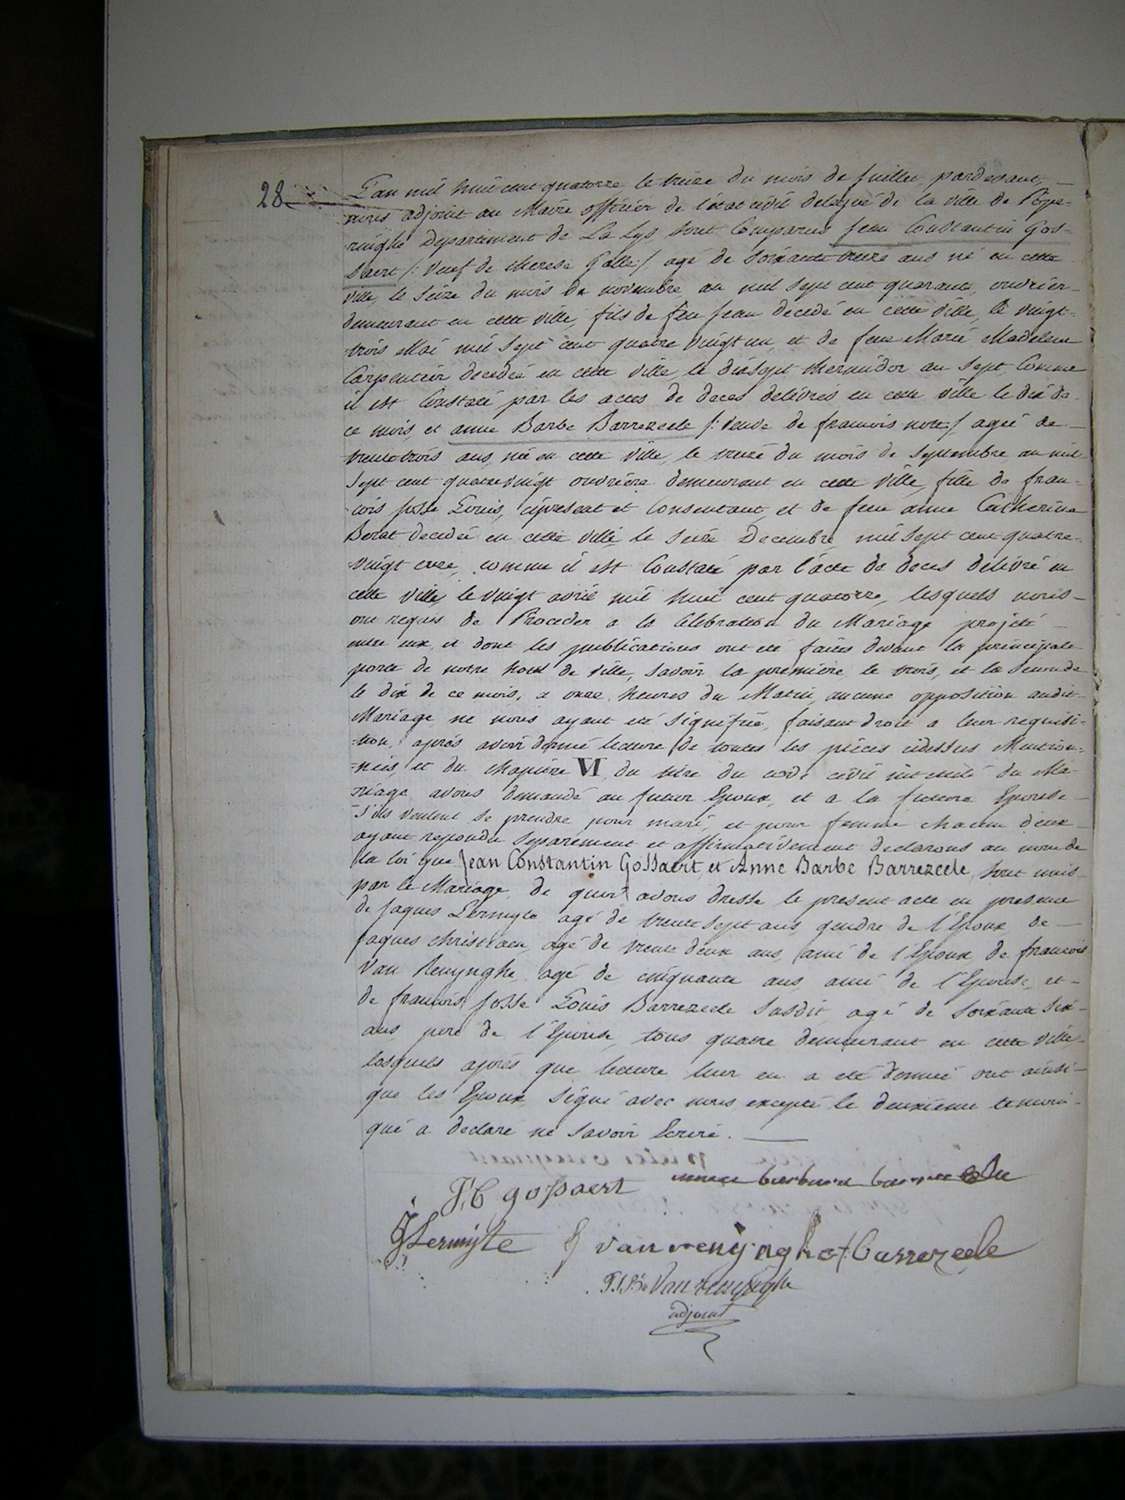 28
L'an mil huit cent quatorze le treize du mois de Juillet pardevant
nous adjoint au Maire officier de l'état civil delegué de la ville de Pope-
ringhe Departement de La Lys sont Comparus Jean Constantin Gos-
saert /: veuf de Therese Galle :/ agé de soixante treize ans né en cette
ville, le seize du mois de novembre an mil sept cent quarante, ouvrier
demeurant en cette ville, fils de feu Jean decedé en cette ville, le vingt-
trois Mai mil sept cent quatre vingt un, et de feue Marie Madeleine
Carpentier decedée en cette ville le dixsept thermidor an sept Comme
il est Constaté par les actes de deces delivrés en cette ville le dix de
ce mois, et anne Barbe Barrezeele /: veuve de francois :/ agée de
trente trois ans, née en cette ville, le treize du mois de septembre an mil
sept cent quatrevingt ouvrière demeurant en cette ville, fille de fran-
cois Josse Louis, cipresent et Consentant, et de feue anne Catherine
decedée en cette ville le seize Decembre mil sept cent quatre-
vingt onze, comme il est Constaté par l'acte de deces delivré en
cette ville, le vingt avril mil huit cent quatorze, lesquels nous
ont requis de Proceder a la Célébration du Mariage projeté
entre eux, et dont les publications ont été faites devant la principale
porte de notre hotel de ville, savoir la première le trois, et la seconde
le dix de ce mois, a onze heures du Matin, aucune opposition audit
Mariage ne nous ayant été signifiée, faisant droit a leur requisi-
-tion, après avoir donné lecture de toutes les pièces cidessus Mention-
-nées et du chapitre VI du titre du code civil intitulé du Ma-
riage avons demandé au futur Epoux, et a la future Epouse
s'ils veulent se prendre pour mari, et pour femme chacun d'eux
ayant repondu separement et affirmativement declarons au nom de
la loi que Jean Constantin Gossaert et Anne Barbe Barrezeele, sont unis
par le Mariage, de quoi avons dressé le present acte en presence
de Jaques Lermyte agé de trente sept ans, gendre de l'Epoux, de
Jaques Christiaen, agé de trente deux ans, ami de l'Epoux de francois
Van Renynghe, agé de cinquante ans ami de l'Epouse, et
de francois Josse Louis Barrezeele susdit agé de soixante six
ans pere de l'Epouse, tous quatre demeurant en cette ville
lesquels après que lecture leur en a été donnée ont ainsi
que les Epoux, signé avec nous excepté le deuxieme temoin
qui a declaré ne savoir Ecrire.
J:C gossaert anna barbara barrezeele
J Lermyte f van renynghe f Barrezeele
Van renynghe
adjoint